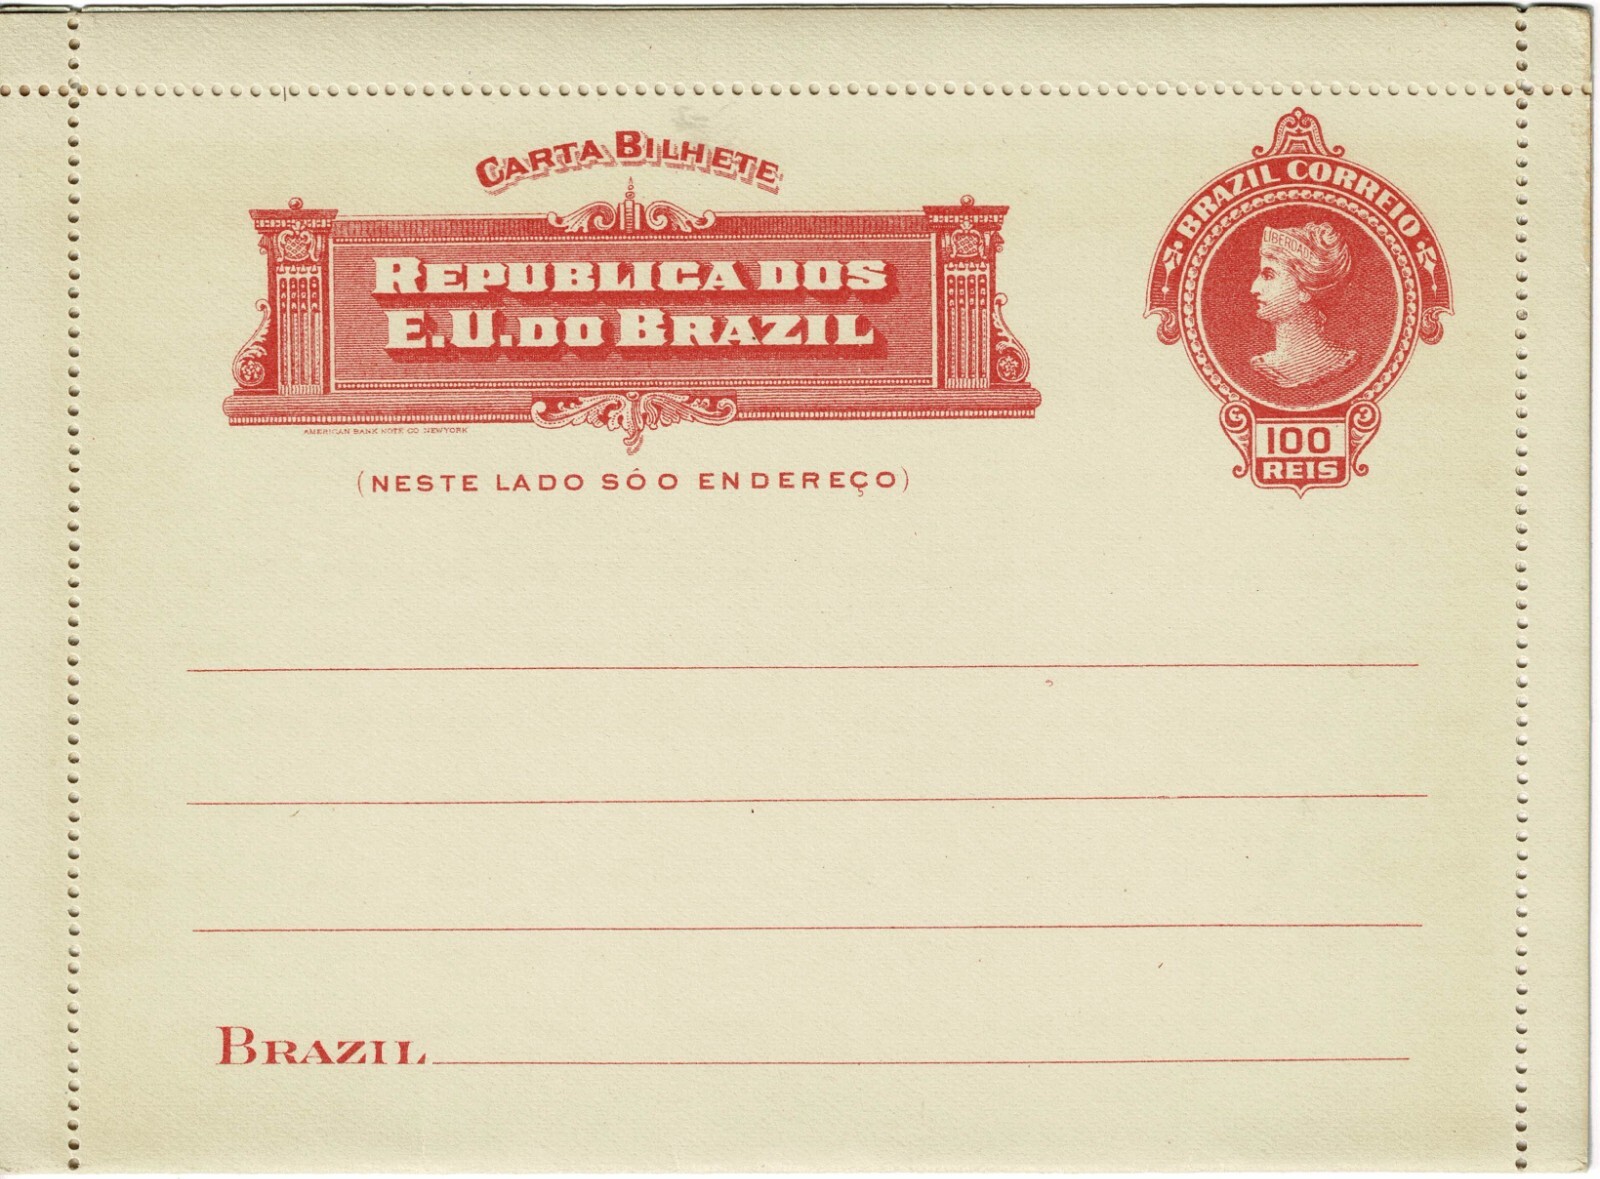 CARTA BILHETE
REPUBLICA DOS
E.U. DO BRAZIL
AMERICAN BANK NOTE CO NEWYORK
(NESTE LADO SÓ O ENDEREÇO)
BRAZIL CORREIO
LIBERDADE
100
REIS
BRAZIL